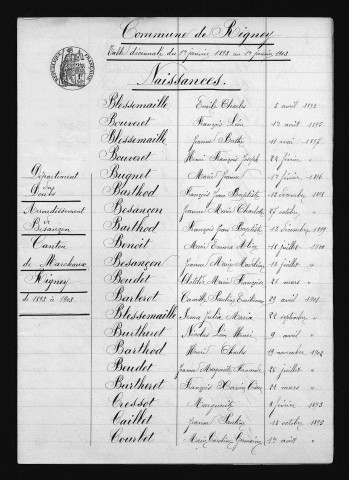 Commune de Rigney
Table décennale du 1er janvier 1893 au 1er janvier 1903
Naissances.
Département
du
Doubs
Arrondissement
de
Besançon
Canton
de Marchaux
Rigney
de 1893 à 1903
Blessemaille Emile Charles 5 avril 1893
Bouveret François Léon 1er août 1895
Blessemaille Jeanne Berthe 11 mai 1897
Bouveret Henri François Joseph 22 février "
Bugnet Marie Jeanne
Barthod François Jean Baptiste décembre 1898
Besançon Jeanne Marie Charlotte 27 octobre "
Barthod François Jean Baptiste 13 décembre 1899
Benoit Marie juillet 1900
Besançon Jeanne Marie juillet "
Boudet Marie Françoise 21 mars "
Barberot Camille Pauline 29 avril 1901
Blessemaille Irma Julia Maria 22 septembre "
Burtheret Nicolas Léon Henri 9 avril "
Barthod Henri Charles 19 novembre 1902
Boudet Jeanne Marguerite Fernande 26 juillet "
Burtheret François 21 mars "
Cressot Marguerite février 1893
Caillet Jeanne Pauline 18 octobre 1895
Courbet Marie Caroline Germaine 12 août "